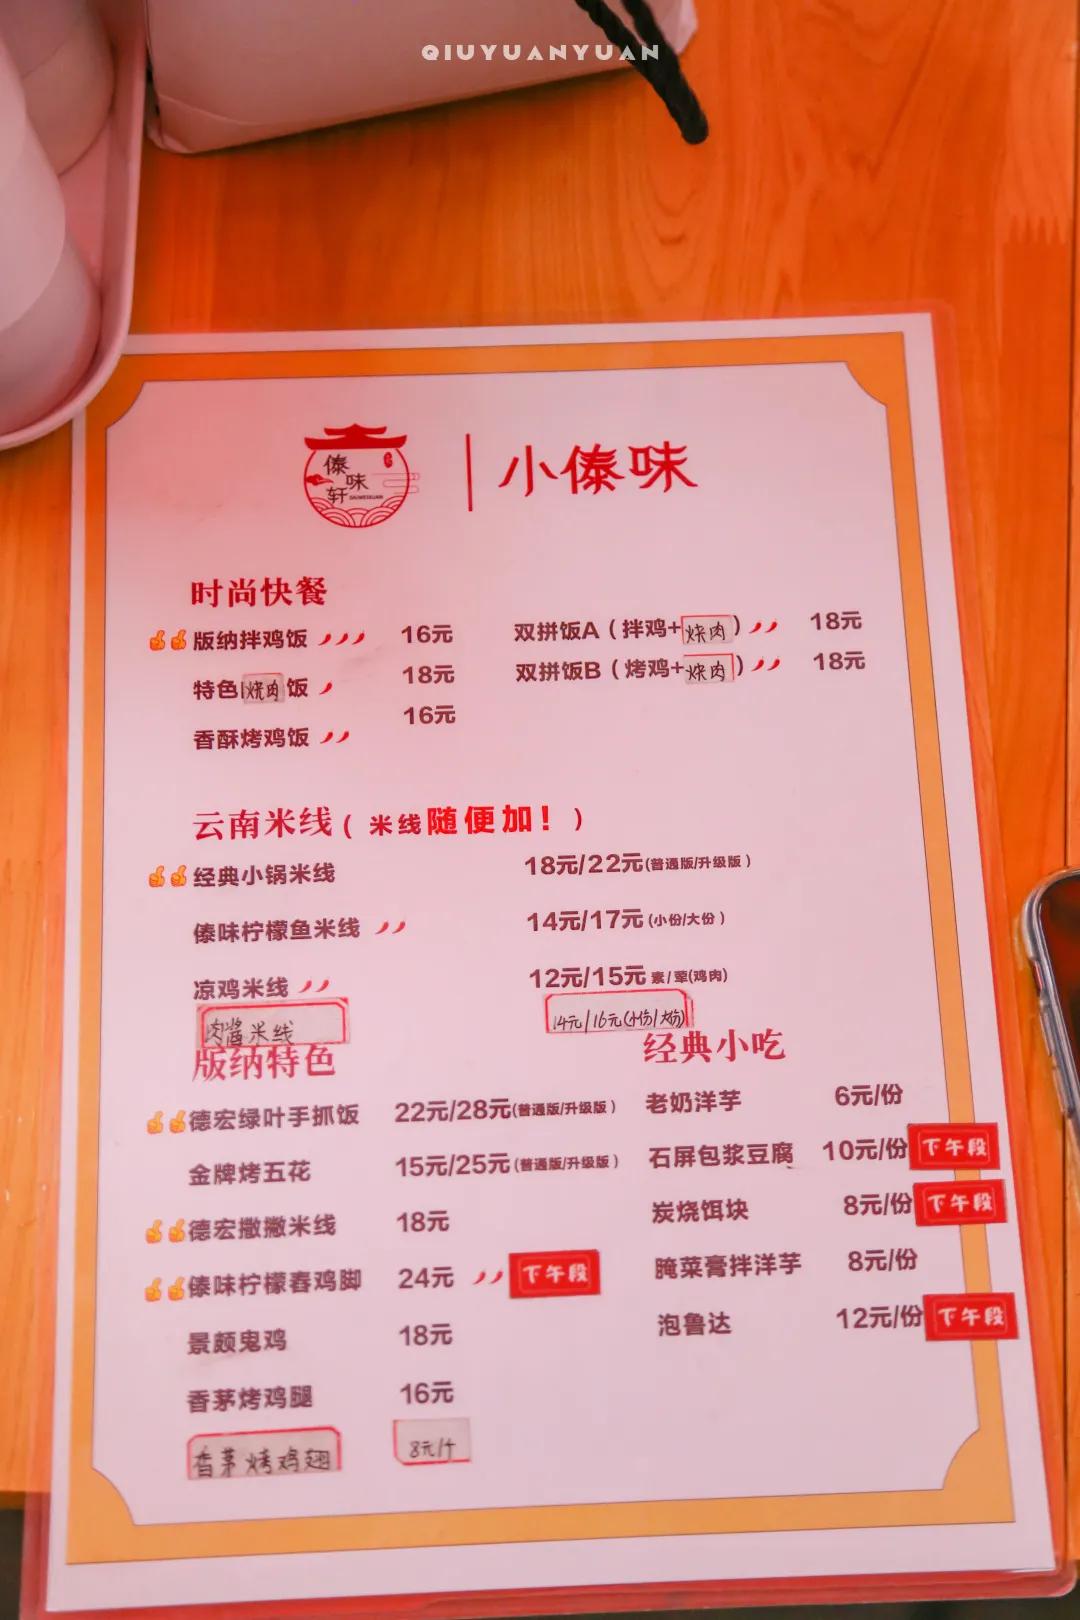 QIUYUANYUAN
傣味轩
DAIWEIXUAN
小傣味
时尚快餐
版纳拌鸡饭 16元
特色烧肉饭 18元
香酥烤鸡饭 16元
双拼饭A（拌鸡+烧肉） 18元
双拼饭B（烤鸡+烧肉） 18元
云南米线（米线随便加！）
经典小锅米线 18元/22元(普通版/升级版)
傣味柠檬鱼米线 14元/17元(小份/大份)
凉鸡米线 12元/15元 素/荤(鸡肉)
肉酱米线 14元/16元(小份/大份)
版纳特色
德宏绿叶手抓饭 22元/28元(普通版/升级版)
金牌烤五花 15元/25元(普通版/升级版)
德宏撒撇米线 18元
傣味柠檬舂鸡脚 24元 下午段
景颇鬼鸡 18元
香茅烤鸡腿 16元
香茅烤鸡翅 8元/个
经典小吃
老奶洋芋 6元/份
石屏包浆豆腐 10元/份 下午段
炭烧饵块 8元/份 下午段
腌菜膏拌洋芋 8元/份
泡鲁达 12元/份 下午段